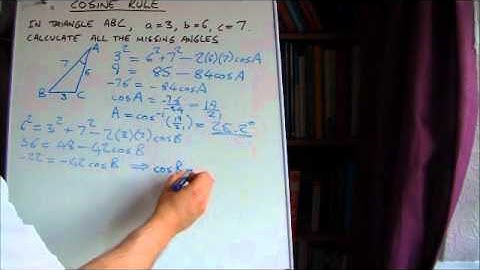 COSINE RULE
IN TRIANGLE ABC, a=3, b=6, c=7.
CALCULATE ALL THE MISSING ANGLES
A
7
6
B
3
C
3² = 6² + 7² − 2(6)(7)cosA
9 = 85 − 84cosA
−76 = −84cosA
cosA = −76/−84 = 19/21
A = cos⁻¹(19/21) = 25.2°
6² = 3² + 7² − 2(3)(7)cosB
36 = 58 − 42cosB
−22 = −42cosB ⇒ cosB